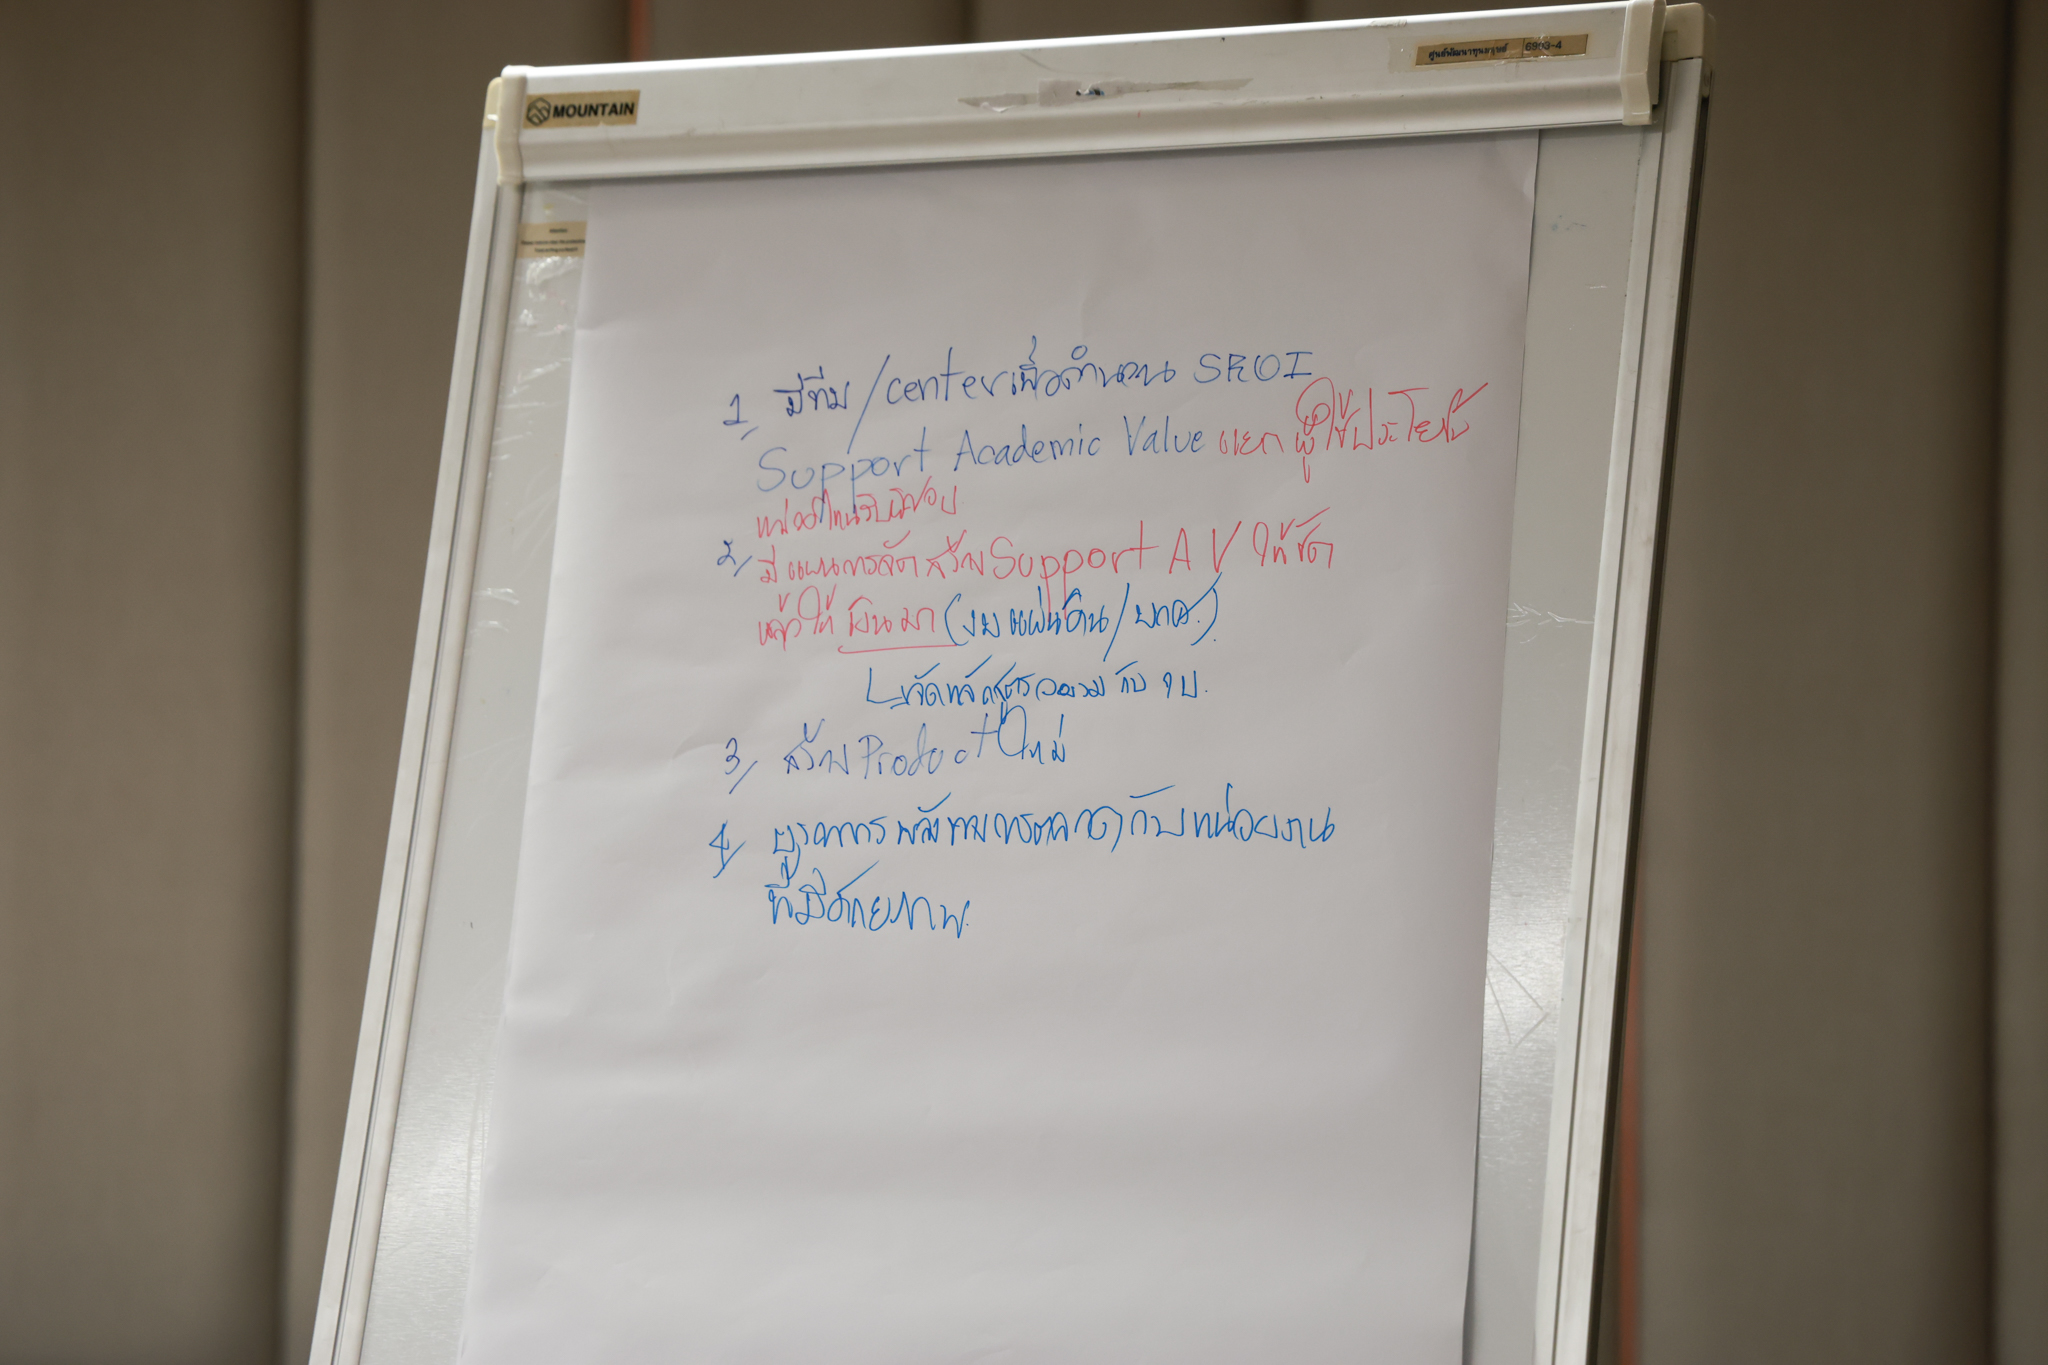 MOUNTAIN
ศูนย์พัฒนาทุนมนุษย์ 6993-4
1, มีทีม/centerเพื่อคำนวน SROI
Support Academic Value แยก ผู้ใช้ประโยชน์
หน่วยไหนรับผิดชอบ
2, มีแผนการจัดสร้าง Support A V ให้ชัด
แล้วให้เงินมา (งบแผ่นดิน/บกศ.)
จัดหลักสูตรอบรมกับ
3, สร้าง Product ใหม่
4, บูรณาการพลังทางการตลาดกับหน่วยงาน
ที่มีศักยภาพ